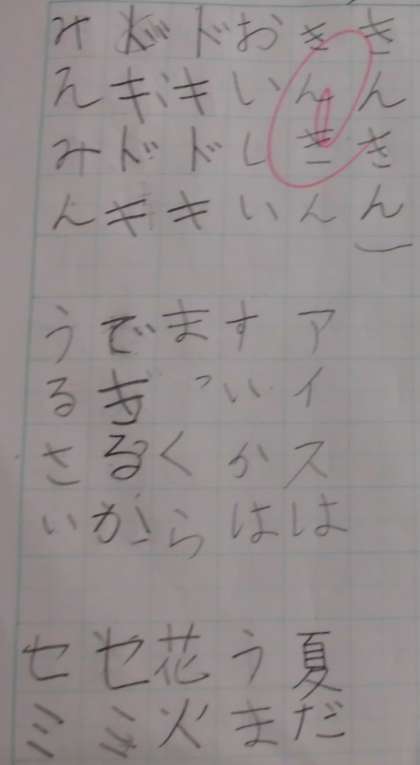 きんきん
きんきん アイスは 夏だ
おいしい すいかは うま
ドキドキ まっくら 花火
ドキドキ セミ
みんみん うるさい セミ